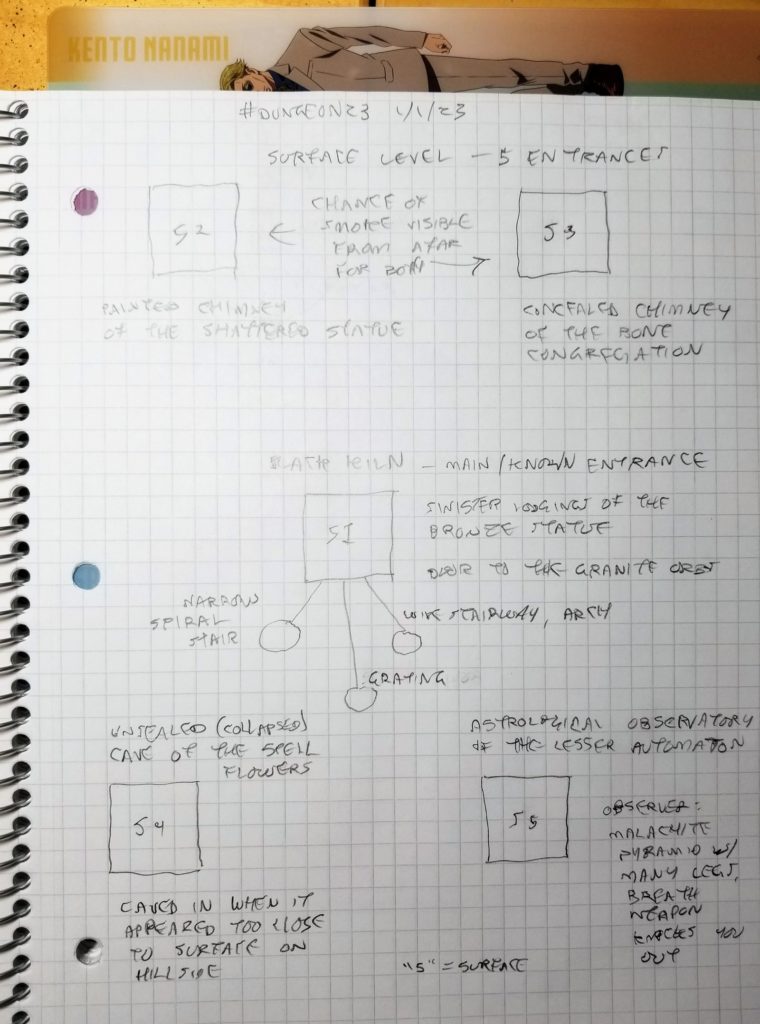 KENTO NANAMI
#DUNGEON23 1/1/23
SURFACE LEVEL - 5 ENTRANCES
S2
← CHANCE OF
SMOKE VISIBLE
FROM AFAR
FOR BOTH →
S3
PAINTED CHIMNEY
OF THE SHATTERED STATUE
CONCEALED CHIMNEY
OF THE BONE
CONGREGATION
KILN - MAIN/KNOWN ENTRANCE
S1
SINISTER LODGINGS OF THE
BRONZE STATUE
DOOR TO THE GRANITE
NARROW
SPIRAL
STAIR
WIDE STAIRWAY, ARCH
GRATING
UNSEALED (COLLAPSED)
CAVE OF THE SPELL
FLOWERS
S4
CAVED IN WHEN IT
APPEARED TOO CLOSE
TO SURFACE ON
HILLSIDE
ASTROLOGICAL OBSERVATORY
OF THE LESSER AUTOMATON
S5
OBSERVER:
MALACHITE
PYRAMID W/
MANY LEGS,
BREATH
WEAPON
KNOCKS YOU
OUT
"S" = SURFACE